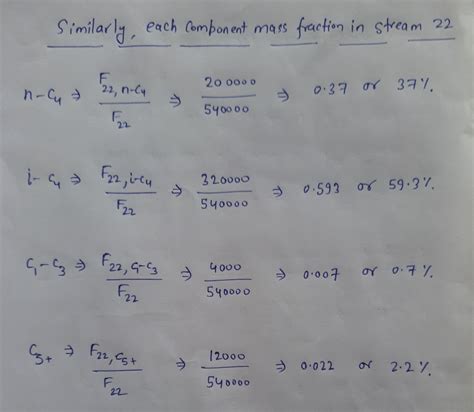 Similarly, each component mass fraction in stream 22
n-C4 ⇒ F22, n-C4 / F22 ⇒ 200000 / 540000 ⇒ 0.37 or 37%.
i-C4 ⇒ F22, i-C4 / F22 ⇒ 320000 / 540000 ⇒ 0.593 or 59.3%.
C1-C3 ⇒ F22, C1-C3 / F22 ⇒ 4000 / 540000 ⇒ 0.007 or 0.7%.
C5+ ⇒ F22, C5+ / F22 ⇒ 12000 / 540000 ⇒ 0.022 or 2.2%.